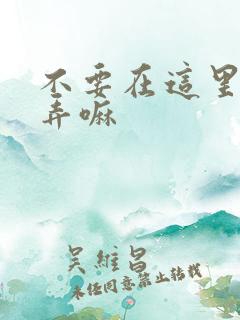 不要在這里
弄嘛
吴維昌
未任同意禁止转载